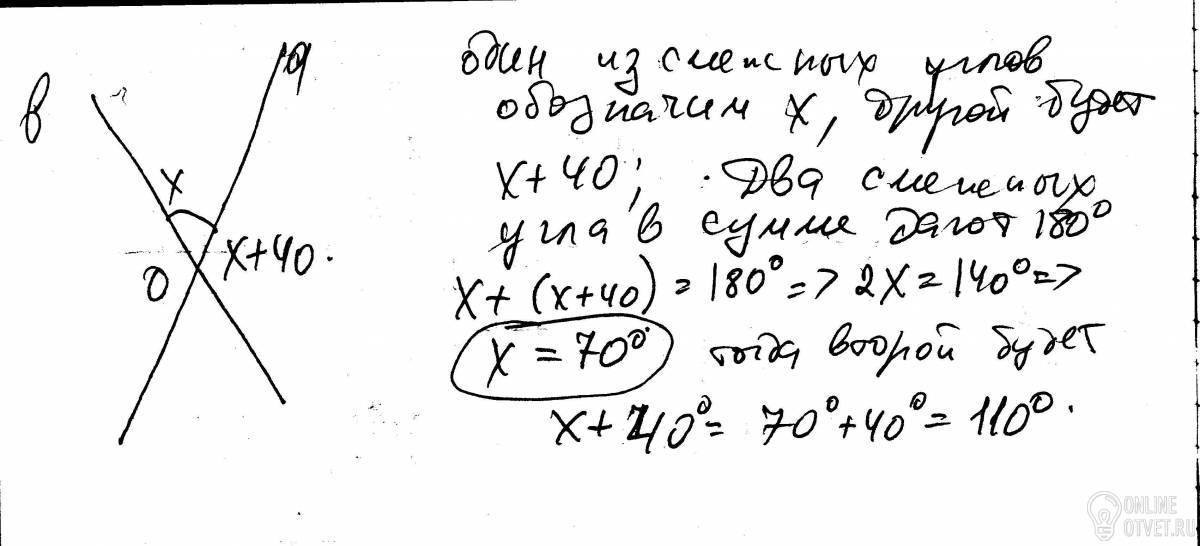 в
а
х
х+40.
0
один из смежных углов
обозначим х, другой будет
х+40; Два смежных
угла в сумме дают 180°
х+(х+40)=180°=> 2х=140°=>
х=70° тогда второй будет
х+40°= 70°+40°=110°.
ONLINE
OTVET.RU